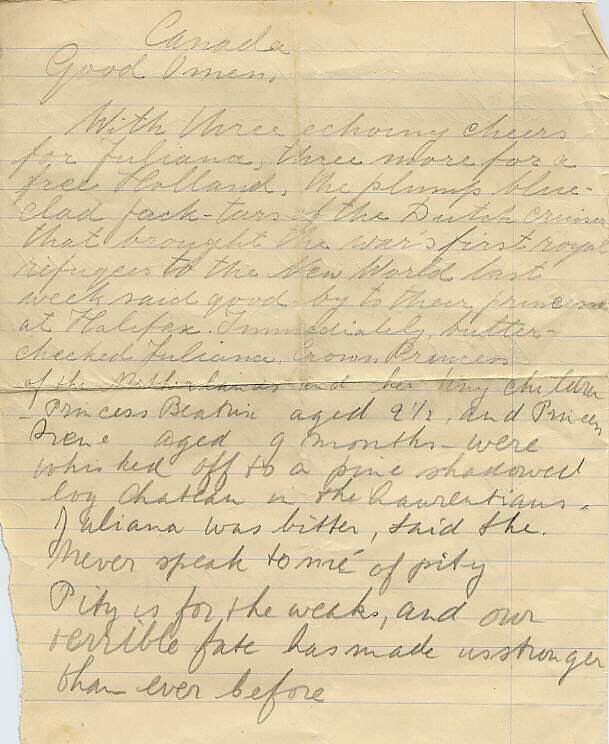 Canada
Good Omen,
With three echoing cheers
for Juliana, three more for a
free Holland, the plump blue-
clad jack-tars of the Dutch cruiser
that brought the war's first royal
refugees to the New World last
week said good by to their princess
at Halifax. Immediately, butter-
cheeked Juliana, Crown Princess
of the Netherlands and her tiny children
- Princess Beatrix aged 2½, and Princess
Irene aged 9 months - were
whisked off to a pine shadowed
log chateau in the Laurentians.
Juliana was bitter, said she.
Never speak to me of pity
Pity is for the weaks, and our
terrible fate has made us stronger
than ever before